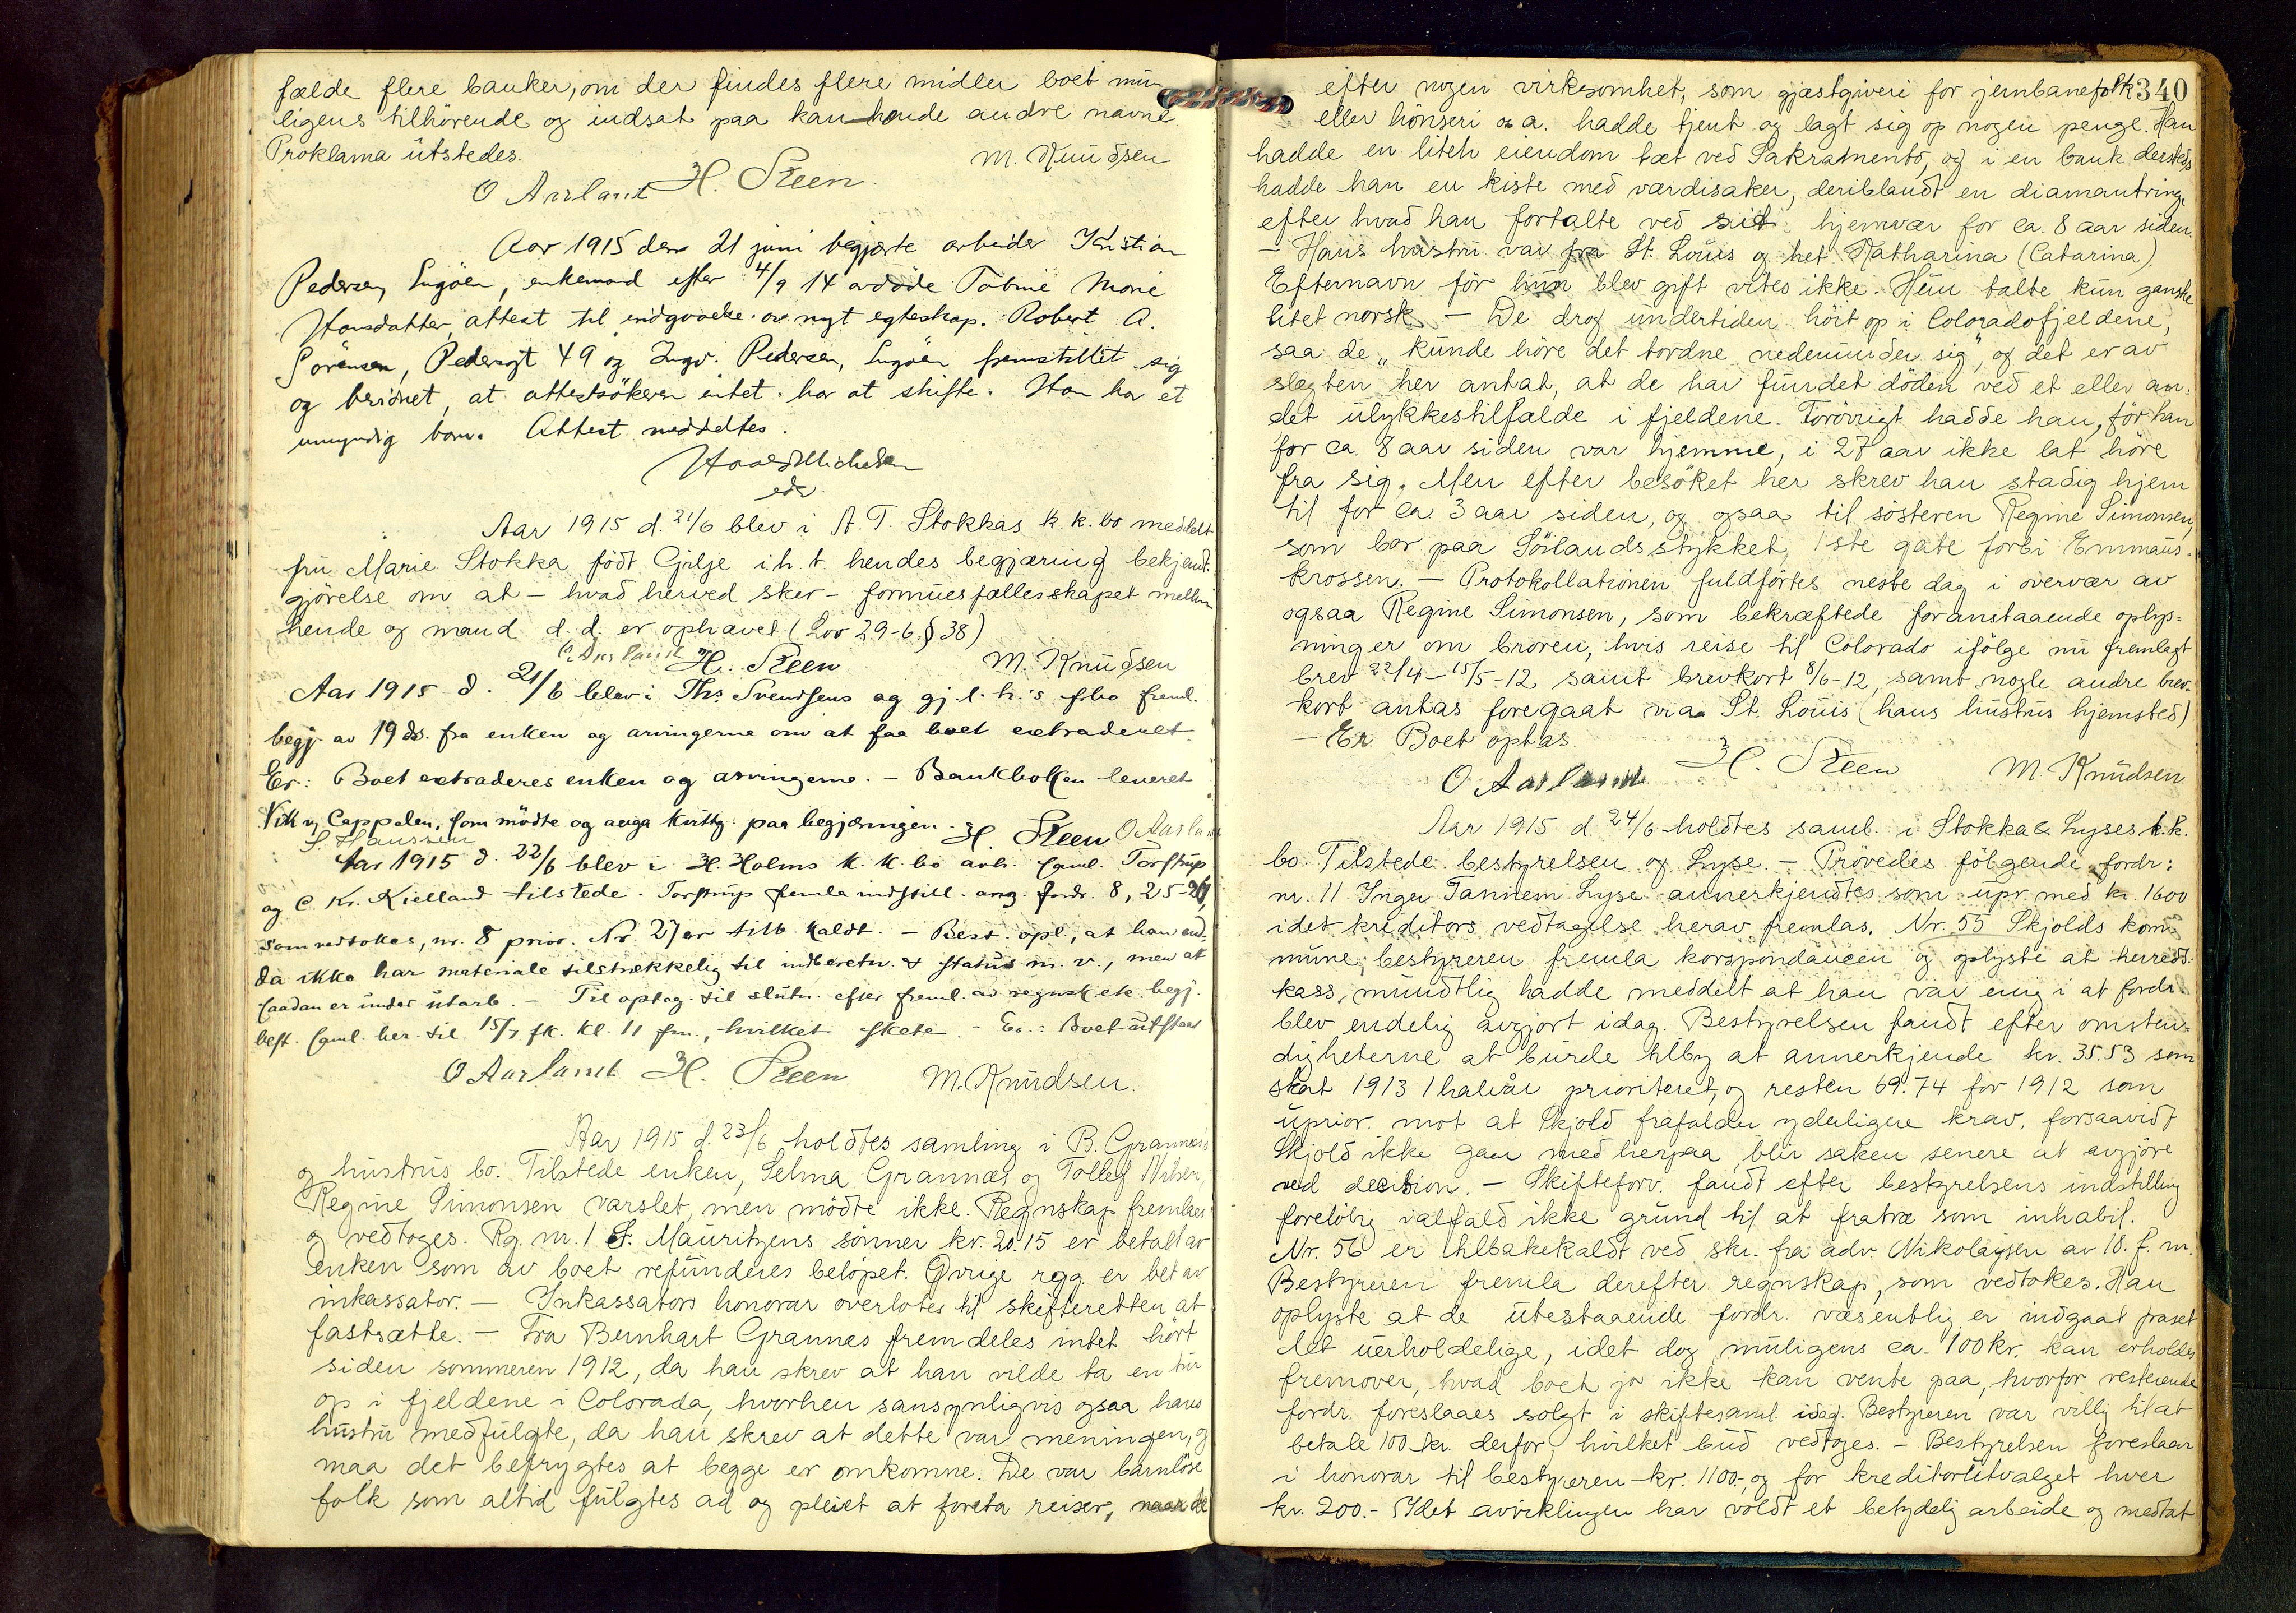 fælde flere banker, om der findes flere midler boet mu-
ligens tilhørende og indsat paa kanhende andre navne
Proklama utstedes.
M. Knudsen
O Aarland H. Steen.
Aar 1915 den 21 juni begjærte arbeider Kristian
Pedersen, Engøen, enkemand efter 4/9 14 avdøde Tobine Marie
Hansdatter attest til indgaaelse av nyt egteskap. Robert A.
Sørensen, Pedersgt 49 og Ingv. Pedersen, Engøen fremstillet sig
og bevidnet, at attestsøkeren intet har at skifte. Han har et
umyndig barn. Attest meddeltes.
eds
Aar 1915 d. 21/6 blev i A. T. Stokkas k. k. bo meddelt
fru Marie Stokka født Gilje i.h.t. hendes begjæring bekjendt-
gjørelse om at - hvad herved sker - formuesfællesskapet mellem
hende og mand d. d. er ophævet (Lov 29-6. § 38)
O Aarland H. Steen M. Knudsen
Aar 1915 d. 21/6 blev i Ths. Svendsens og gj. l. h.'s fbo freml.
begj. av 19 ds. fra enken og arvingerne om at faa boet extraderet.
Er: Boet extraderes enken og arvingerne. - Bankboken leveret
Nik v Cappelen, som mødte og avga kvittg. paa begjæringen. H. Steen O Aarland
S. Hanssen
Aar 1915 d. 22/6 blev i H. Holms k. k. bo avh. saml. Torstrup
og C. Kr. Kielland tilstede. Torstrup femla indstill. ang. fordr. 8, 25-26,
som vedtokes, nr. 8 prior. Nr. 27 er tilb. kaldt. - Best. opl., at han end-
da ikke har materiale tilstrækkelig til indberetn. & status m. v., men at
saadan er under utarb. - Til optag. til slutn. efter freml. av regnsk. etc. begj.
best. saml. her til 15/7 fk. kl. 11 fm., hvilket skete. - Er.: Boet utstaar
O Aarland H. Steen M. Knudsen.
Aar 1915 d. 23/6 holdtes samling i B. Grannæs's
og hustrus bo. Tilstede enken, Selma Grannæs og Tollef Nilsen,
Regine Simonsen varslet, men mødte ikke. Regnskap fremlaes
og vedtoges. Rg. nr. 1 S. Mauritzens sønner kr. 20.15 er betalt av
enken som av boet refunderes beløpet. Øvrige rgg. er bet av
inkassator. - Inkassators honorar overlotes til skifteretten at
fastsætte. - Fra Bernhart Grannæs fremdeles intet hørt
siden sommeren 1912, da han skrev at han vilde ta en tur
op i fjeldene i Colorada, hvorhen sansynligvis ogsaa hans
hustru medfulgte, da han skrev at dette var meningen, og
maa det befrygtes at begge er omkomne. De var barnløse
folk som altid fulgtes ad og pleiet at foreta reiser, naar de
340
efter nogen virksomhet, som gjæstgiveri for jernbanefolk
eller hønseri o a. hadde tjent og lagt sig op nogen penge. Han
hadde en liten eiendom tæt ved Sakramento, og i en bank dersteds
hadde han en kiste med værdisaker, deriblandt en diamantring,
efter hvad han fortalte ved sit hjemvær for ca. 8 aar siden.
- Hans hustru var fra St. Louis og het Katharina (Catarina).
Efternavn før hun blev gift vites ikke. Hun talte kun ganske
litet norsk. - De drog undertiden høit op i Coloradofjeldene,
saa de „kunde høre det tordne nedenunder sig", og det er av
slegten her antat, at de har fundet døden ved et eller an-
det ulykkestilfælde i fjeldene. Forøvrigt hadde han, før han
for ca. 8 aar siden var hjemme, i 27 aar ikke lat høre
fra sig. Men efter besøket her skrev han stadig hjem
til for ca 3 aar siden, og ogsaa til søsteren Regine Simonsen,
som bor paa Sørlandsstykket, 1ste gate forbi Emmaus-
krossen. - Protokollationen fuldførtes neste dag i overvær av
ogsaa Regine Simonsen, som bekræftede foranstaaende oplys-
ninger om broren, hvis reise til Colorado ifølge nu fremlagt
brev 22/4-15/5-12 samt brevkort 8/6-12, samt nogle andre brev-
kort antas foregaat via St. Louis (hans hustrus hjemsted)
- Er. Boet optas.
O Aarland H. Steen M. Knudsen
Aar 1915 d. 24/6 holdtes saml. i Stokka & Lyses k.k.
bo. Tilstede bestyrelsen og Lyse. - Prøvedes følgende fordr:
nr. 11 Inger Tannem Lyse annerkjendtes som upr. med kr. 1600
idet kreditors vedtagelse herav fremlas. Nr. 55 Skjolds kom-
mune; bestyreren fremla korspondancen og oplyste at herreds-
kass. mundtlig hadde meddelt at han var enig i at fordr.
blev endelig avgjort idag. Bestyrelsen fandt efter omsten-
dighetene at burde tilby at annerkjende kr. 35.53 som
skat 1913 1 halvår prioriteret, og resten 69.74 for 1912 som
uprior. mot at Skjold frafalder yderligere krav. forsaavidt
Skjold ikke gaar med herpaa blir saken senere at avgjøre
ved decision. - Skifteforv. fandt efter bestyrelsens indstilling
foreløbig ialfald ikke grund til at fratræ som inhabil.
Nr. 56 er tilbakekaldt ved skr. fra adv. Nikolaysen av 18. f. m.
Bestyreren fremla derefter regnskap, som vedtokes. Han
oplyste at de utestaaende fordr. væsentlig er indgaat fraset
det uerholdelige, idet dog muligens ca. 100 kr. kan erholdes
fremover, hvad boet jo ikke kan vente paa, hvorfor resterende
fordr. foreslaaes solgt i skiftesaml. idag. Bestyreren var villig til at
betale 100 kr. derfor, hvilket bud vedtoges. - Bestyrelsen foreslaar
i honorar til bestyreren kr. 1100,- og for kreditorutvalget hver
kr. 200.- Idet avviklingen har voldt et betydelig arbeide og medtat